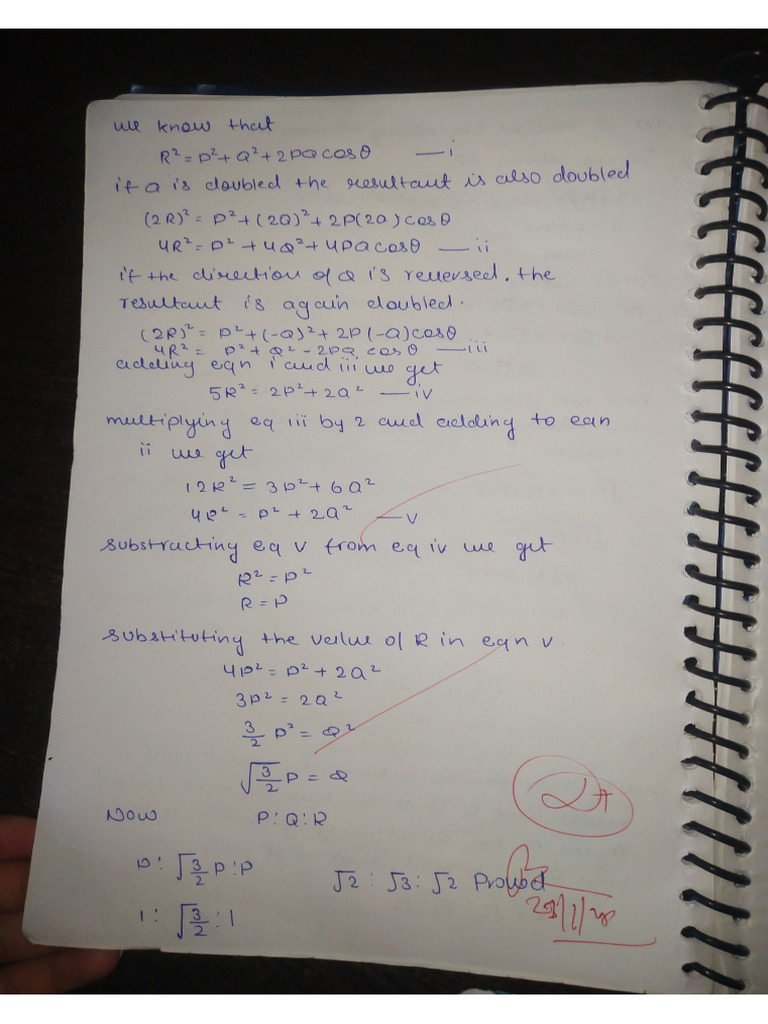 we know that
R² = P² + Q² + 2PQ cosθ — i
if Q is doubled the resultant is also doubled
(2R)² = P² + (2Q)² + 2P(2Q) cosθ
4R² = P² + 4Q² + 4PQ cosθ — ii
if the direction of Q is reversed, the
resultant is again doubled.
(2R)² = P² + (-Q)² + 2P(-Q) cosθ
4R² = P² + Q² - 2PQ cosθ — iii
adding eqn i and iii we get
5R² = 2P² + 2Q² — iv
multiplying eq iii by 2 and adding to eqn
ii we get
12R² = 3P² + 6Q²
4R² = P² + 2Q² — v
substructing eq v from eq iv we get
R² = P²
R = P
substituting the value of R in eqn v
4P² = P² + 2Q²
3P² = 2Q²
3/2 P² = Q²
√3/2 P = Q
Now P : Q : R
P : √3/2 P : P
√2 : √3 : √2 Proved
1 : √3/2 : 1